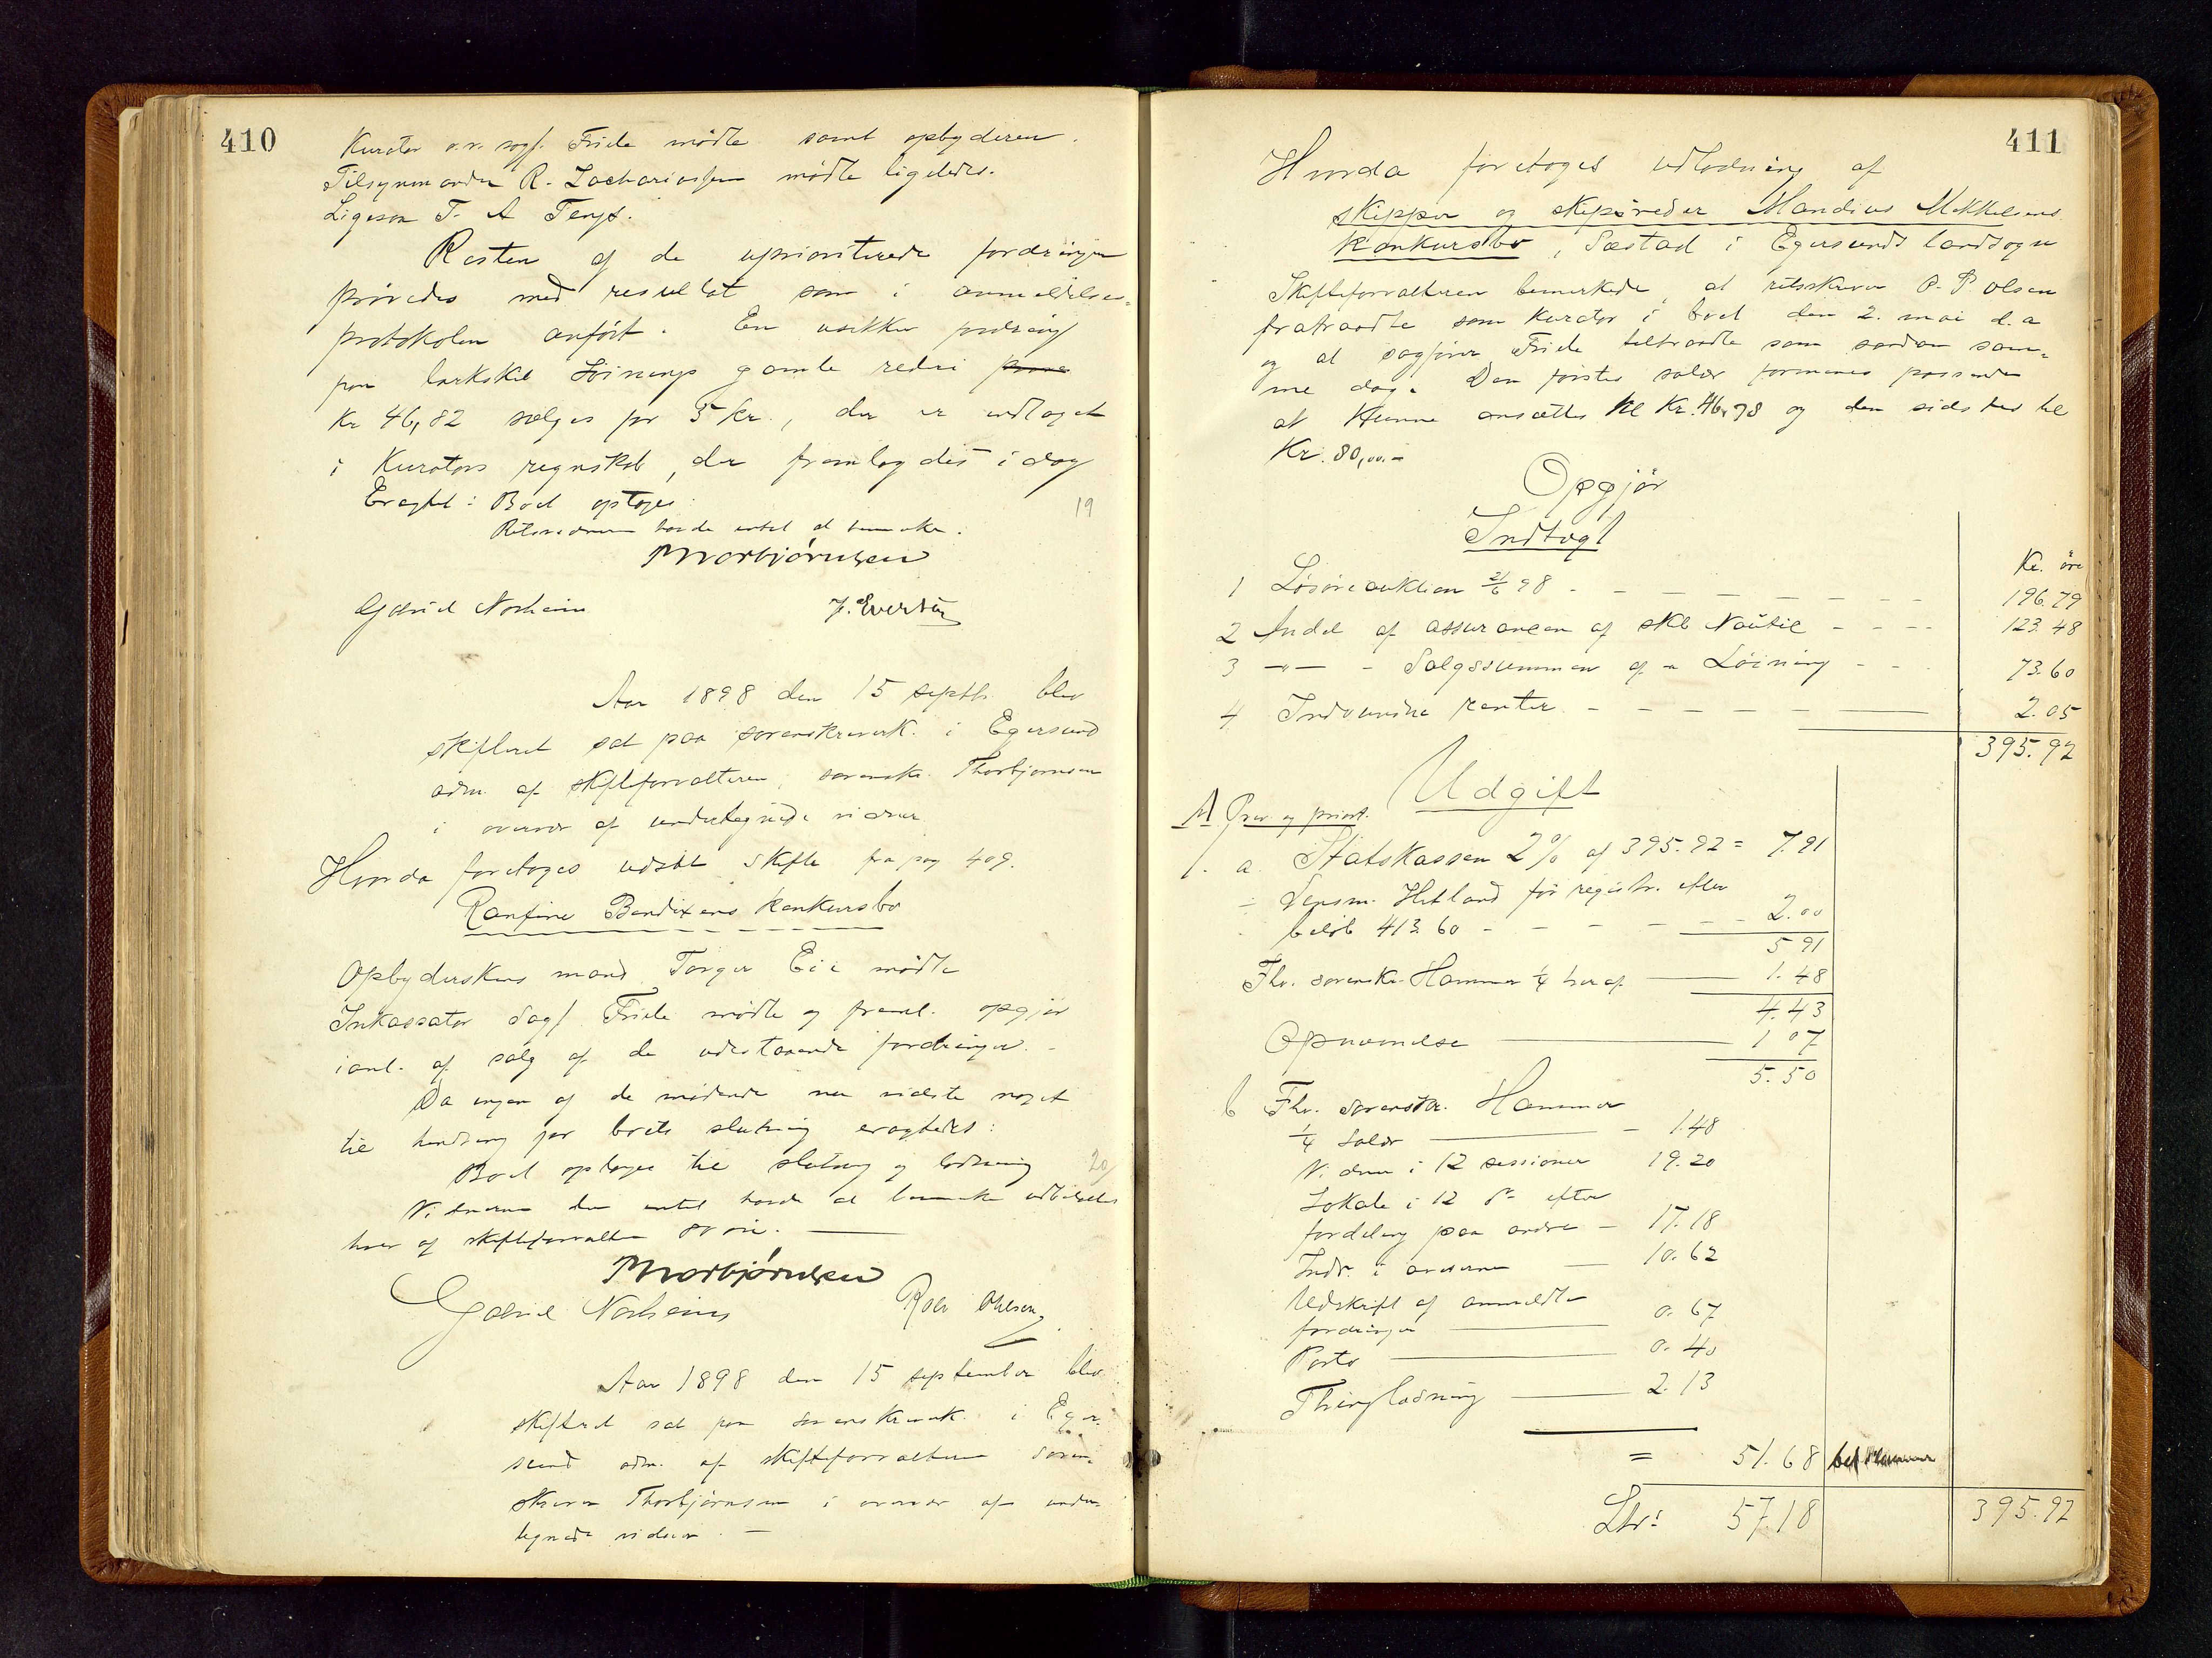 410
Kurator o.r. sagf. Friele mødte samt opbyderen.
Tilsynsmanden R. Zachariassen mødte ligeledes.
Ligesaa T. A Tengs.
Resten af de uprioriterede fordringer
prøvedes med resultat som i anmeldelses-
protokolen anført. En usikker fordring
paa barkskib Løinings gamle rederi
Kr 46,82 sælges for 5 Kr., der er indtaget
i Kurators regnskab, der fremlagdes i dag
Eragtet: Boet optages.
Retsvidnerne havde intet at bemærke.
19
Thorbjørnsen
Gabriel Norheim J. Evertsen
Aar 1898 den 15 septbr. blev
skifteret sat paa sorenskriverk. i Egersund
adm. af skifteforvalteren, sorenskr. Thorbjørnsen
i overvær af undertegnede vidner
Hvorda foretoges udsat skifte fra pag 409.
Ranfine Bendixens Konkursbo
Opbyderskens mand Torger Eie mødte
Inkassator Sagf Friele mødte og freml. opgjør
i anl. af salg af de udestaaende fordringer.
Da ingen af de mødende nu vidste noget
til hindring for boets slutning eragtedes:
Boet optages til slutning og lodning
20
Vidnerne der intet havde at bemærke udbetaltes
hver af skifteforvalteren 80 øre.
Thorbjørnsen
Gabriel Norheim
Aar 1898 den 15 september blev
skifteret sat paa sorenskriverk. i Eger-
sund adm. af skifteforvalteren soren-
skriver Thorbjørnsen i overvær af under-
tegnede vidner. —
411
Hvorda foretoges udlodning af
skipper og skipsreder Mandius Mikkelsens
Konkursbo, Sæstad i Egersunds landsogn
Skifteforvalteren bemerkede, at retsskriver O. P. Olsen
fratraadte som Kurator i boet den 2. mai d.a
og at sagfører Friele tiltraadte som saadan sam-
me dag. Den førstes salær formenes passende
at kunne ansættes til Kr. 46,78 og den sidstes til
Kr. 80,00.-
Opgjør
Indtægt
Kr. øre
1 Løsøreauktion 21/6 98 - 196.79
2 Andel af assurancen af skb Nautic - 123.48
3 —"— - Salgssummen af - Løining - 73.60
4 Indvundne renter - 2.05
395.92
Udgift
A Præv og priorit.
1. a Statskassen 2% af 395.92 = 7.91
÷ Lensm. Hetland for registr. efter
beløb 413.60 - 2.00
5.91
Fhv. sorenskr. Hammer 1/4 heraf 1.48
4.43
Opnævnelse 1 07
5.50
b Fhv. sorenskr. Hammer
1/4 Salær 1.48
Vidner i 12 sessioner 19.20
Lokale i 12 do efter
fordeling paa andre - 17.18
Indr. i aviserne 10.62
Udskrift af anmeldte
fordringer 0.67
Porto 0.40
Thinglæsning 2.13
= 51.68
Ltr: 57.18 395.92